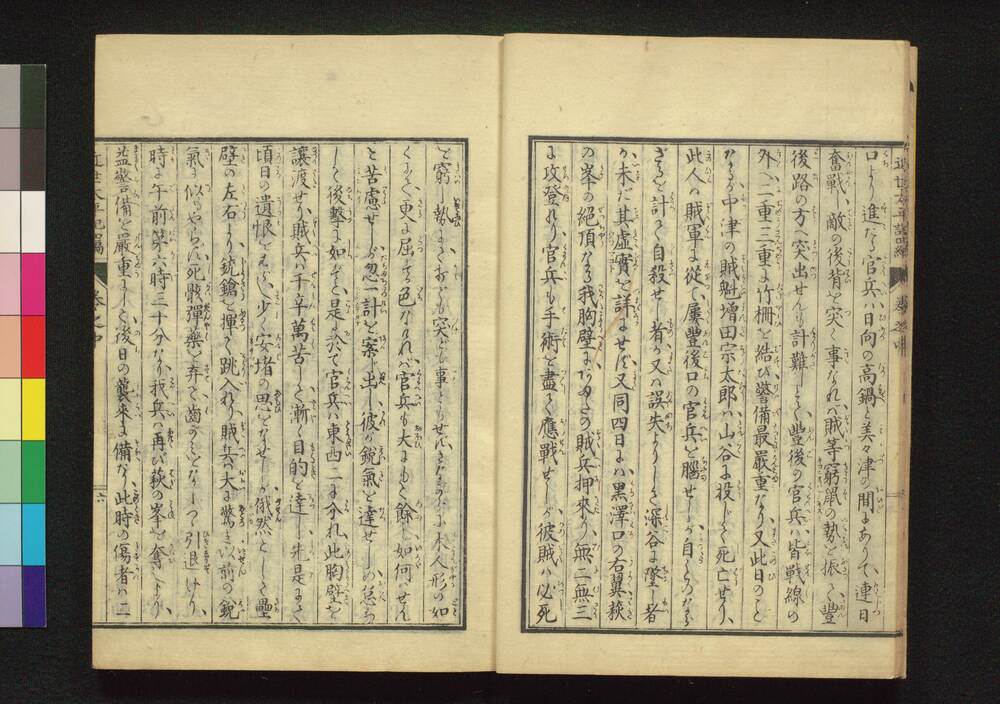 口より進たる官兵ハ日向の高鍋と美々津の間にありて連日
奮戦し敵の後背を突く事なれハ賊等窮鼠の勢を振ひ豊
後路の方へ突出せんも計難しとて豊後の官兵ハ皆戦線の
外へ二重三重に竹柵を結び警備最厳重なり又此日のこと
なるが中津の賊魁増田宗太郎ハ山谷に投じて死亡せり
此人の賊軍に従て屢豊後口の官兵を腦せしが自らのがる
ざるを計て自殺せし者か又ハ誤失よりしき深谷に墜し者
か未だ其虚實を詳にせず又同四日にハ黒澤口の右翼萩
の峯の絶頂なる我胸壁に あまたの賊兵押來り無二無三
に攻登れり官兵も手術を盡して應戦せしが彼賊ハ必死
を窮し勢 にて おどし突ども事ともせず さながら木人形の如
くして更に屈する色なけれバ官兵も大にもて餘し如何せん
と苦慮せしが忽一計を案じ出し彼が鋭氣を達せしめ怠る
して後撃に如ずと是に於て官兵ハ東西二に分れ此胸壁を
讓渡せり賊兵ハ千辛萬苦して漸く目的を達し先是にて
頃日の遺恨をはらし少く安堵の思をなせしが俄然として壘
壁の左右より銃鎗を揮て跳入れり賊兵ハ大に驚き以前の鋭
氣に似もやらず死骸彈藥を弃て齒がみをなしつゝ引退けり
時に午前第六時三十分なり我兵ハ再び萩の峯を奪ひしより
益警備を嚴重にして後日の襲來に備ふ此時の傷者ハ二
近世太平記
巻之中
六